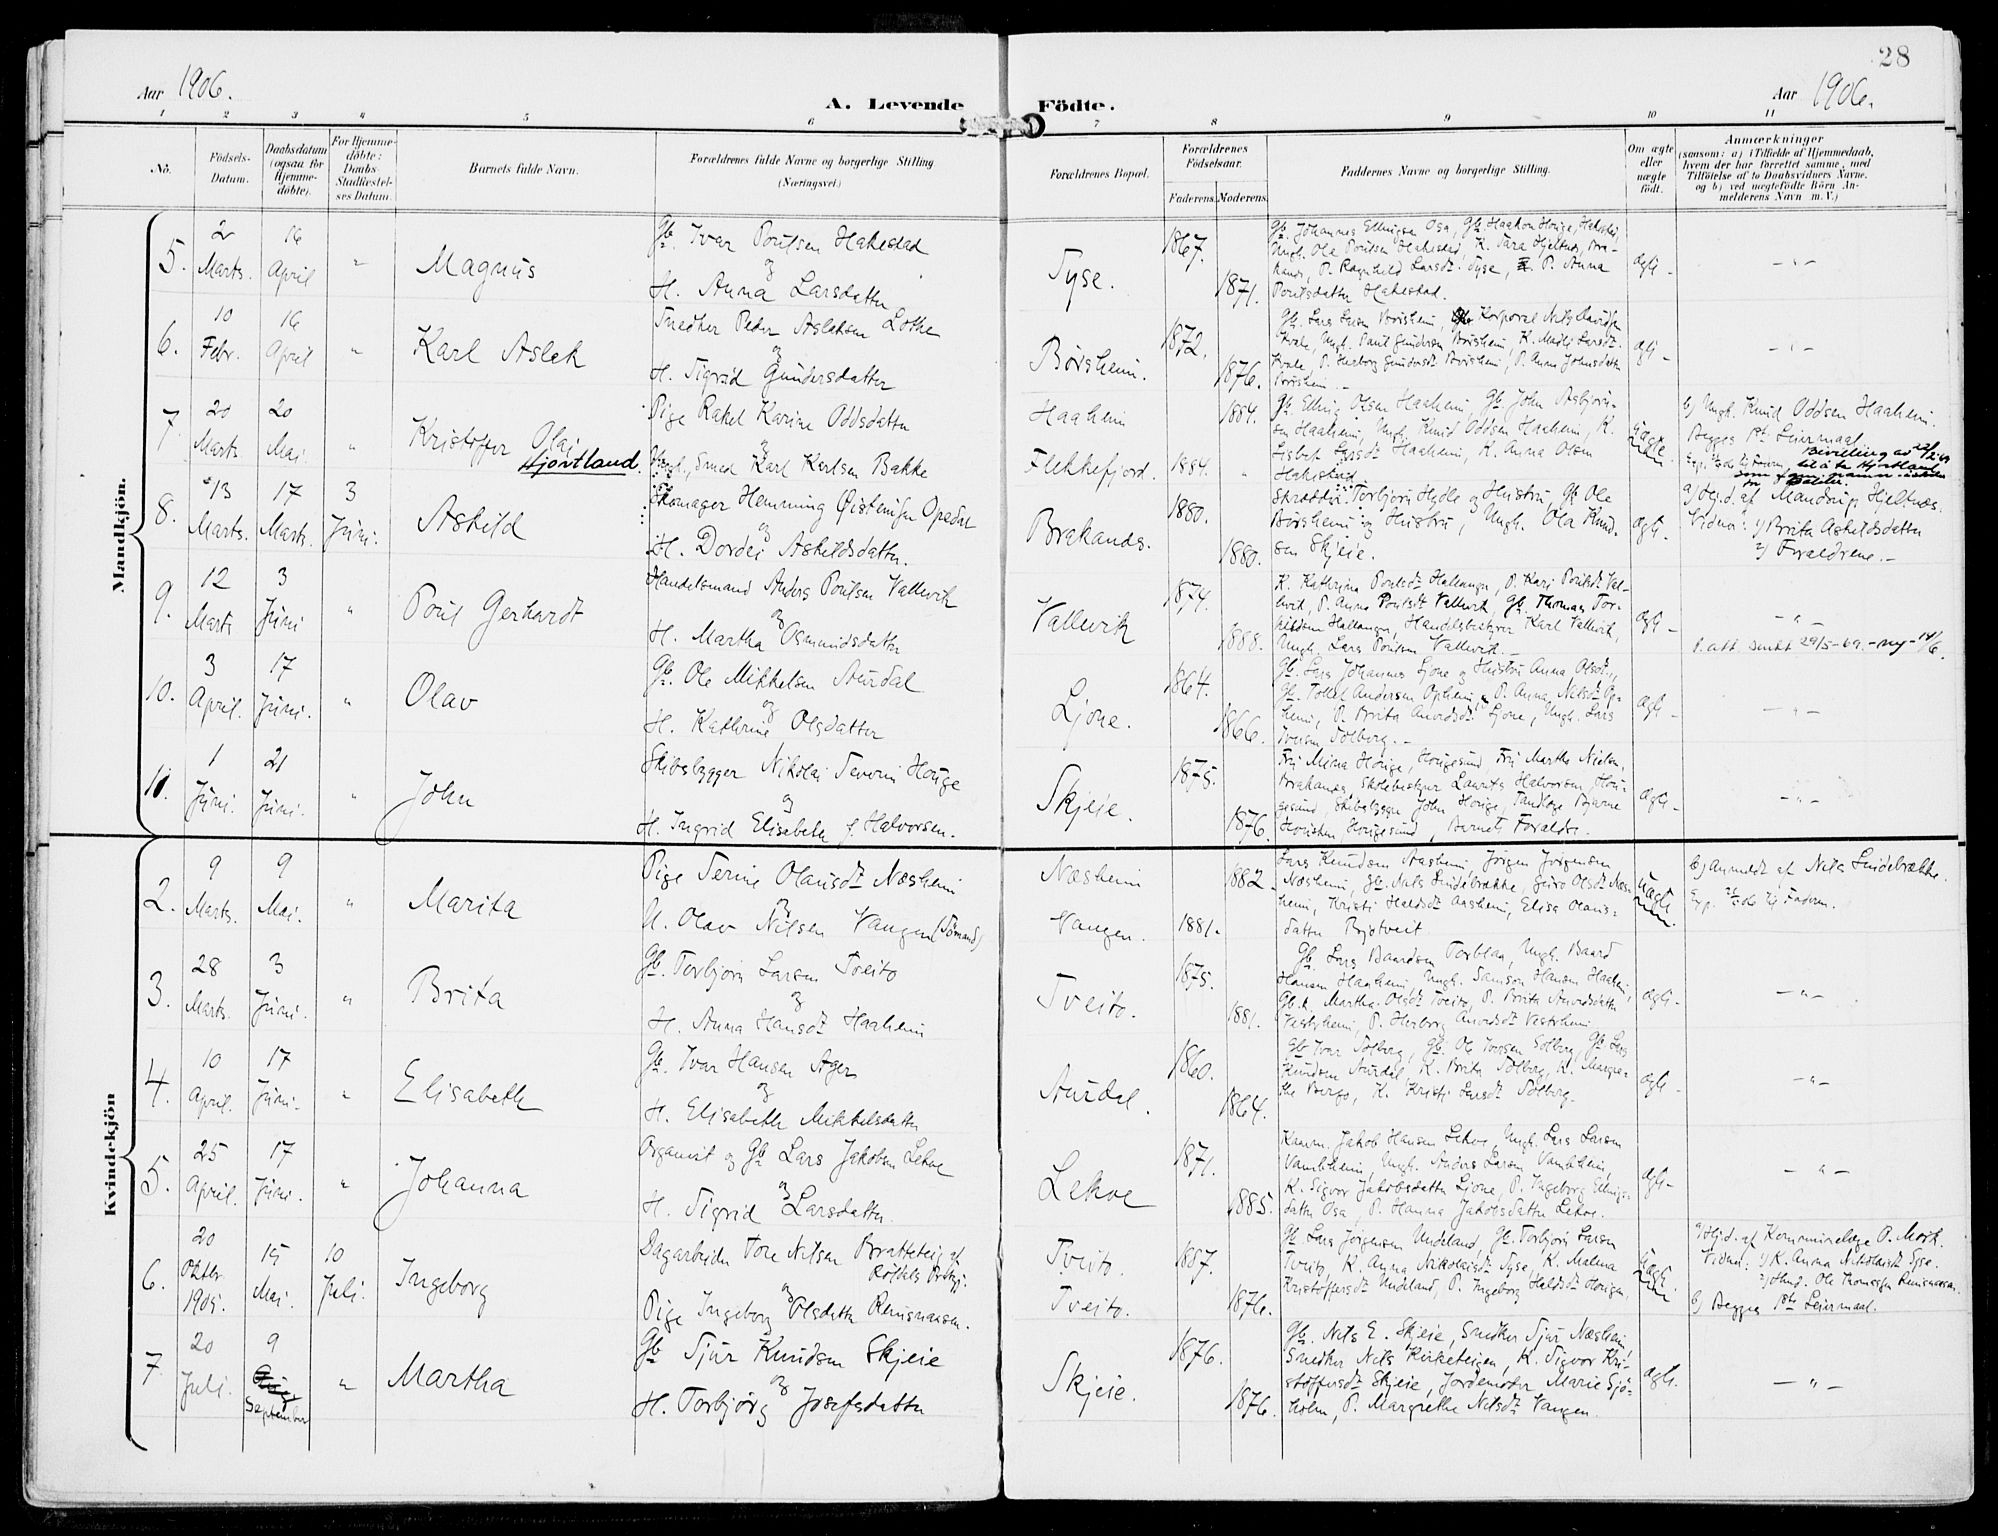 28
Aar 1906.
A. Levende Födte.
Aar 1906.
1 2 3 4 5 6 7 8 9 10 11
No.
Födsels-
Datum.
Daabsdatum
(ogsaa for
Hjemme-
döbte).
For Hjemme-
döbte:
Daabs-
Stadfæstel-
ses Datum.
Barnets fulde Navn.
Forældrenes fulde Navne og borgerlige Stilling
(Næringsvei.)
Forældrenes Bopæl.
Forældrenes
Födselsaar.
Faderens. Moderens.
Faddernes Navne og borgerlige Stilling.
Om ægte
eller
uægte
födt.
Anmærkninger
(saasom: a) i Tilfælde af Hjemmedaab,
hvem der har forrettet samme, med
Tilföielse af to Daabsvidners Navne,
og b) ved uegtefödte Börn An-
melderens Navn m. V.)
Mandkjön.
5.
2 Marts.
16 April
"
Magnus
Gb. Ivar Poulsen Hakestad
og
H. Anna Larsdatter
Tyse.
1867.
1871.
Gb. Johannes Ellingsen Osa, Gb. Haakon Horige, Hakestad,
Ungk. Ole Poulsen Hakestad, K. Sara Hjeltnes, Bra-
kanes, P. Ragnhild Larsdt. Tyse, P. Anna
Poulsdatter Hakestad.
ægte -
- " -
6.
10 Febr.
16 April
"
Karl Aslek
Snedker Peder Aslaksen Lothe
og
H. Sigrid Gundersdatter
Børsheim.
1872.
1876.
Gb. Lars Larsen Børsheim, Korporal Nils Davidsen
Kvale, Ungk. Paul Gundersen Børsheim, K. Madli Larsdt.
Kvale, P. Herborg Gundersdt Børsheim, P. Anna Johnsdatter
Børsheim. -
ægte -
- " -
7.
20 Marts.
20 Mai
"
Kristoffer Olai
Hjortland.
Pige Rakel Karine Oddsdatter
og
Ungk., Smed Karl Karlsen Bakke
Haaheim
Flekkefjord.
1884.
1884.
Gb. Elling Olsen Haaheim, Gb. John Asbjørn-
sen Haaheim, Ungk. Knud Oddsen Haaheim, K.
Lisbet Larsdt Haaheim, K. Anna Olsen
Hakestad.
Uægte.
b) Ungk. Knud Oddsen Haaheim.
Begges 1st Leiermaal.
Bevilling av
til å ta Hjortland
som
8.
13 Marts.
17 Marts.
3 Juni.
Askild
Skomager Hemming Øisteinsen Opedal
og
H. Dordei Askildsdatter.
Brakanes.
1880.
1880.
Skrædder Torbjørn Hylle og Hustru, Gb. Ole
Børsheim og Hustru, Ungk. Ola Knud-
sen Skjeie.
ægte.
a) Hjd. af Mandrup Hjeltnæs.
Vidner: 1) Brita Askildsdatter
2) Forældrene. -
9.
12 Marts
3 Juni
"
Poul Gerhardt
Handelsmand Anders Poulsen Vallevik
og
H. Martha Osmundsdatter
Vallevik
1874.
1888.
K. Kathrina Poulsdt Hallanger, P. Kari Poulsdt Val-
levik, P. Anna Poulsdt Vallevik, Gb. Thomas Tor-
kildsen Hallanger, Handelsbestyrer Karl Vallevik,
Ungk. Lars Poulsen Vallevik. -
ægte -
- " -
P. att. sendt 29/5-69. - ny - 14/6.
10.
3 April.
17 Juni.
"
Olav
Gb. Ole Mikkelsen Aurdal
og
H. Kathrine Olsdatter
Ljone.
1864.
1866.
Gb. Lars Johannes Ljone og Hustru Anna Olsdt.,
Gb. Tollef Andersen Opheim, P. Anna Nilsdt Op-
heim, P. Brita Anvedsdt. Ljone, Ungk. Lars
Iversen Solberg. -
ægte -
- " -
11.
1 Juni.
21 Juni.
"
John
Skibsbygger Nikolai Severin Horige
og
H. Ingrid Elisabeth f. Halvorsen.
Skjeie.
1875.
1876.
Fru Mina Horige, Haugesund, Fru Marthe Nielsen,
Brakanes, Skolebestyrer Laurits Halvorsen, Hau-
gesund, Skibsbygger John Horige, Tandlæge Bjarne
Hougesund, Barnets Forældre.
ægte -
- " -
Kvindekjön
2.
9 Marts.
9 Mai.
"
Marita
Pige Serine Olausdt Næsheim
og
U. Olav Nilsen Vangen (Sömand)
Næsheim
Vangen.
1882.
1881.
Lars Knudsen Aasheim, Jørgen Jørgensen
Næsheim, Gb. Nils Lindebrække, Guro Olsdt Næs-
heim, Kristi Haldsdt Aasheim, Elisa Olaus-
datter Bjotveit
Uægte
b) Anmeldt af Nils Lindebrække.
3.
28 Marts.
3 Juni.
"
Brita
Gb. Torbjørn Larsen Tveito
og
H. Anna Hansdt Haaheim
Tveito.
1875.
1881.
Gb. Lars Baardsen Torblaa, Ungk. Baard
Hansen Haaheim, Ungk. Samson Hansen Haaheim,
Gb.k. Martha Olsdt Tveito, P. Brita Anvedsdatter
Vestrheim, P. Herborg Anvedsdt Vestrheim
ægte -
- " -
4.
10 April.
17 Juni.
"
Elisabeth
Gb. Ivar Hansen Ager
og
H. Elisabeth Mikkelsdatter
Aurdal.
1860.
1864.
Gb. Ivar Solberg, Gb. Ole Iversen Solberg, Gb. Lars
Knudsen Aurdal, K. Brita Solberg, K. Margre-
the Berge, K. Kristi Larsdt Solberg.
ægte -
- " -
5.
25 April.
17 Juni.
"
Johanna
Organist og Gb. Lars Jakobsen Lekve
og
H. Sigrid Larsdatter.
Lekve
1871.
1885.
Kaarm. Jakob Hansen Lekve, Ungk. Lars Larsen
Vambheim, Ungk. Anders Larsen Vambheim,
K. Sigvor Jakobsdatter Ljone, P. Ingeborg Ellings-
datter Osa, P. Hanna Jakobsdatter Lekve.
ægte -
- " -
6.
20 Oktbr. 1905.
15 Mai.
10 Juli.
Ingeborg
Dagarbeider Tore Nilsen Bratteteig af
Røldals Prstgj.
og
Pige Ingeborg Olsdatter Reinsnaasen.
Tveito
Tveito.
1887.
1876.
Gb. Lars Jørgensen Undeland, Gb. Torbjørn Larsen
Tveito, K. Anna Nikolaisdt Tyse, K. Malena
Kristoffersdt Undeland, P. Ingeborg Haldsdt Horigen,
Uægte
a) Hjd. af Kommunelæge O. Mork.
Vidner: 1) K. Anna Nikolaisdt Tyse.
2) Husm. Ole Thomassen Reinsnaasen.
b) Begges 1ste Leiermaal.
7.
20 Juli.
9 September
"
Martha
Gb. Sjur Knudsen Skjeie
og
H. Torbjørg Josefsdatter
Skjeie.
1876.
1876.
Gb. Nils E. Skjeie, Snedker Sjur Næsheim,
Snedker Nils Kirketeigen, K. Sigvor Kri-
stoffersdt Skjeie, Jordemoder Marie Sjö-
holm, P. Margrethe Nilsdt Vangen.
ægte.
- " -